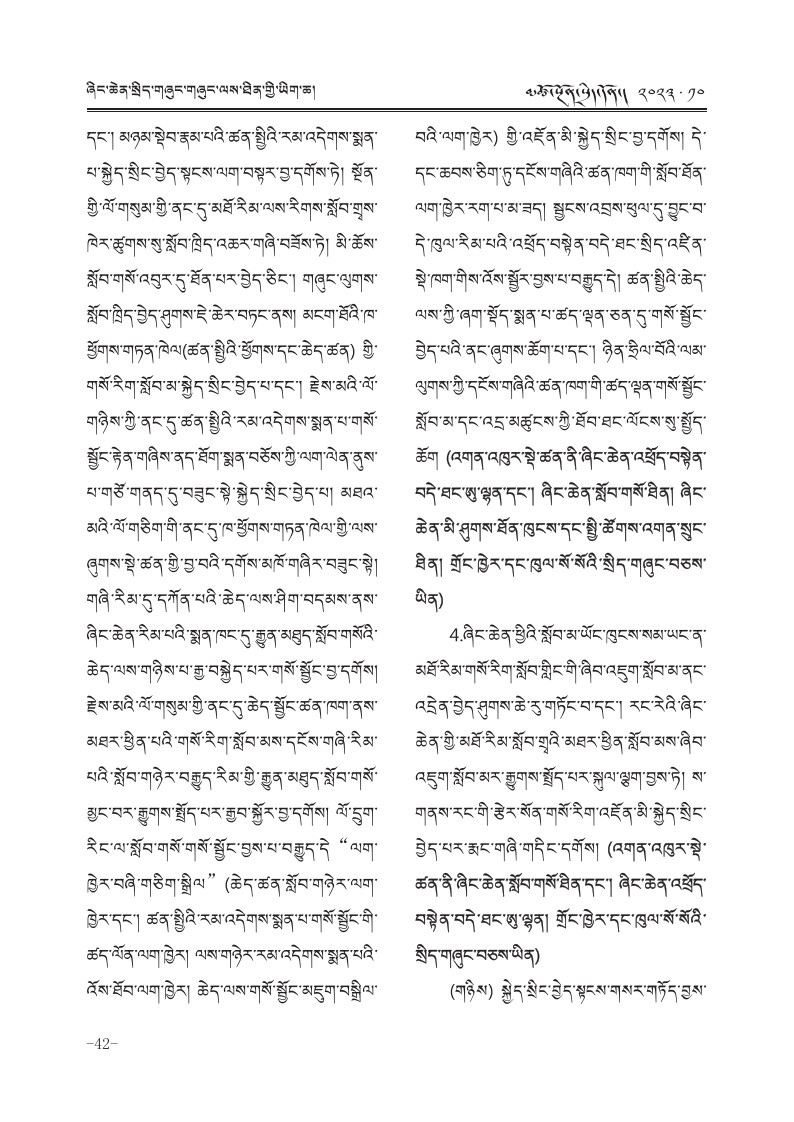 ཞིང་ཆེན་སྲིད་གཞུང་གཞུང་ལས་ཐིན་གྱི་ཡིག་ཆ།
༢༠༢༣ · ༡༠
དང་། མཉམ་སྡེབ་རྣམ་པའི་ཚན་སྤྱིའི་རམ་འདེགས་སྨན་
པ་སྐྱེད་སྲིང་བྱེད་སྟངས་ལག་བསྟར་བྱ་དགོས་ཏེ། སྔོན་
གྱི་ལོ་གསུམ་གྱི་ནང་དུ་མཐོ་རིམ་ལས་རིགས་སློབ་གྲྭས་
ཁེར་ཚུགས་སུ་སློབ་ཁྲིད་འཆར་གཞི་བཟོས་ཏེ། མི་ཆོས་
སློབ་གསོ་འབུར་དུ་ཐོན་པར་བྱེད་ཅིང་། གཞུང་ལུགས་
སློབ་ཁྲིད་བྱེད་ཤུགས་ཇེ་ཆེར་བཏང་ནས། མངག་ཐོའི་ཁ་
ཕྱོགས་གཏན་ཁེལ(ཚན་སྤྱིའི་ཕྱོགས་དང་ཆེད་ཚན) གྱི་
གསོ་རིག་སློབ་མ་སྐྱེད་སྲིང་བྱེད་པ་དང་། རྗེས་མའི་ལོ་
གཉིས་ཀྱི་ནང་དུ་ཚན་སྤྱིའི་རམ་འདེགས་སྨན་པ་གསོ་
སྦྱོང་རྟེན་གཞིས་ནད་ཐོག་སྨན་བཅོས་ཀྱི་ལག་ལེན་ནུས་
པ་གཙོ་གནད་དུ་བཟུང་སྟེ་སྐྱེད་སྲིང་བྱེད་པ། མཐའ་
མའི་ལོ་གཅིག་གི་ནང་དུ་ཁ་ཕྱོགས་གཏན་ཁེལ་གྱི་ལས་
ཞུགས་སྡེ་ཚན་གྱི་བྱ་བའི་དགོས་མཁོ་གཞིར་བཟུང་སྟེ།
གཞི་རིམ་དུ་དཀོན་པའི་ཆེད་ལས་ཤིག་བདམས་ནས་
ཞིང་ཆེན་རིམ་པའི་སྨན་ཁང་དུ་རྒྱུན་མཐུད་སློབ་གསོའི་
ཆེད་ལས་གཉིས་པ་རྒྱ་བསྐྱེད་པར་གསོ་སྦྱོང་བྱ་དགོས།
རྗེས་མའི་ལོ་གསུམ་གྱི་ནང་དུ་ཆེད་སྦྱོང་ཚན་ཁག་ནས་
མཐར་ཕྱིན་པའི་གསོ་རིག་སློབ་མས་དངོས་གཞི་རིམ་
པའི་སློབ་གཉེར་བརྒྱུད་རིམ་གྱི་རྒྱུན་མཐུད་སློབ་གསོ་
མྱང་བར་རྒྱུགས་སྤྲོད་པར་རྒྱབ་སྐྱོར་བྱ་དགོས། ལོ་དྲུག་
རིང་ལ་སློབ་གསོ་གསོ་སྦྱོང་བྱས་པ་བརྒྱུད་དེ “ལག་
ཁྱེར་བཞི་གཅིག་སྒྲིལ” (ཆེད་ཚན་སློབ་གཉེར་ལག་
ཁྱེར་དང་། ཚན་སྤྱིའི་རམ་འདེགས་སྨན་པ་གསོ་སྦྱོང་གི་
ཚད་ལོན་ལག་ཁྱེར། ལས་གཉེར་རམ་འདེགས་སྨན་པའི་
འོས་ཐོབ་ལག་ཁྱེར། ཆེད་ལས་གསོ་སྦྱོང་མཇུག་བསྒྲིལ་
བའི་ལག་ཁྱེར) གྱི་འཛོན་མི་སྐྱེད་སྲིང་བྱ་དགོས། དེ་
དང་ཆབས་ཅིག་ཏུ་དངོས་གཞིའི་ཚན་ཁག་གི་སློབ་ཐོན་
ལག་ཁྱེར་རག་པ་མ་ཟད། སྦྱངས་འབྲས་ཕུལ་དུ་བྱུང་བ་
དེ་ཁུལ་རིམ་པའི་འཕྲོད་བསྟེན་བདེ་ཐང་སྲིད་འཛིན་
སྡེ་ཁག་གིས་འོས་སྦྱོར་བྱས་པ་བརྒྱུད་དེ། ཚན་སྤྱིའི་ཆེད་
ལས་ཀྱི་ཞག་སྡོད་སྨན་པ་ཚད་ལྡན་ཅན་དུ་གསོ་སྦྱོང་
བྱེད་པའི་ནང་ཞུགས་ཆོག་པ་དང་། ཉིན་ཧྲིལ་པོའི་ལམ་
ལུགས་ཀྱི་དངོས་གཞིའི་ཚན་ཁག་གི་ཚད་ལྡན་གསོ་སྦྱོང་
སློབ་མ་དང་འདྲ་མཚུངས་ཀྱི་ཐོབ་ཐང་ལོངས་སུ་སྤྱོད་
ཆོག (འགན་འཁུར་སྡེ་ཚན་ནི་ཞིང་ཆེན་འཕྲོད་བསྟེན་
བདེ་ཐང་ཨུ་ལྷན་དང་། ཞིང་ཆེན་སློབ་གསོ་ཐིན། ཞིང་
ཆེན་མི་ཤུགས་ཐོན་ཁུངས་དང་སྤྱི་ཚོགས་འགན་སྲུང་
ཐིན། གྲོང་ཁྱེར་དང་ཁུལ་སོ་སོའི་སྲིད་གཞུང་བཅས་
ཡིན)
4.ཞིང་ཆེན་ཕྱིའི་སློབ་མ་ཡོང་ཁུངས་སམ་ཡང་ན་
མཐོ་རིམ་གསོ་རིག་སློབ་གླིང་གི་ཞིབ་འཇུག་སློབ་མ་ནང་
འདྲེན་བྱེད་ཤུགས་ཆེ་རུ་གཏོང་བ་དང་། རང་རེའི་ཞིང་
ཆེན་གྱི་མཐོ་རིམ་སློབ་གྲྭའི་མཐར་ཕྱིན་སློབ་མས་ཞིབ་
འཇུག་སློབ་མར་རྒྱུགས་སྤྲོད་པར་སྐུལ་ལྕག་བྱས་ཏེ། ས་
གནས་རང་གི་རྩེར་སོན་གསོ་རིག་འཛོན་མི་སྐྱེད་སྲིང་
བྱེད་པར་རྨང་གཞི་གདིང་དགོས། (འགན་འཁུར་སྡེ་
ཚན་ནི་ཞིང་ཆེན་སློབ་གསོ་ཐིན་དང་། ཞིང་ཆེན་འཕྲོད་
བསྟེན་བདེ་ཐང་ཨུ་ལྷན། གྲོང་ཁྱེར་དང་ཁུལ་སོ་སོའི་
སྲིད་གཞུང་བཅས་ཡིན)
(གཉིས) སྐྱེད་སྲིང་བྱེད་སྟངས་གསར་གཏོད་བྱས་
–42–